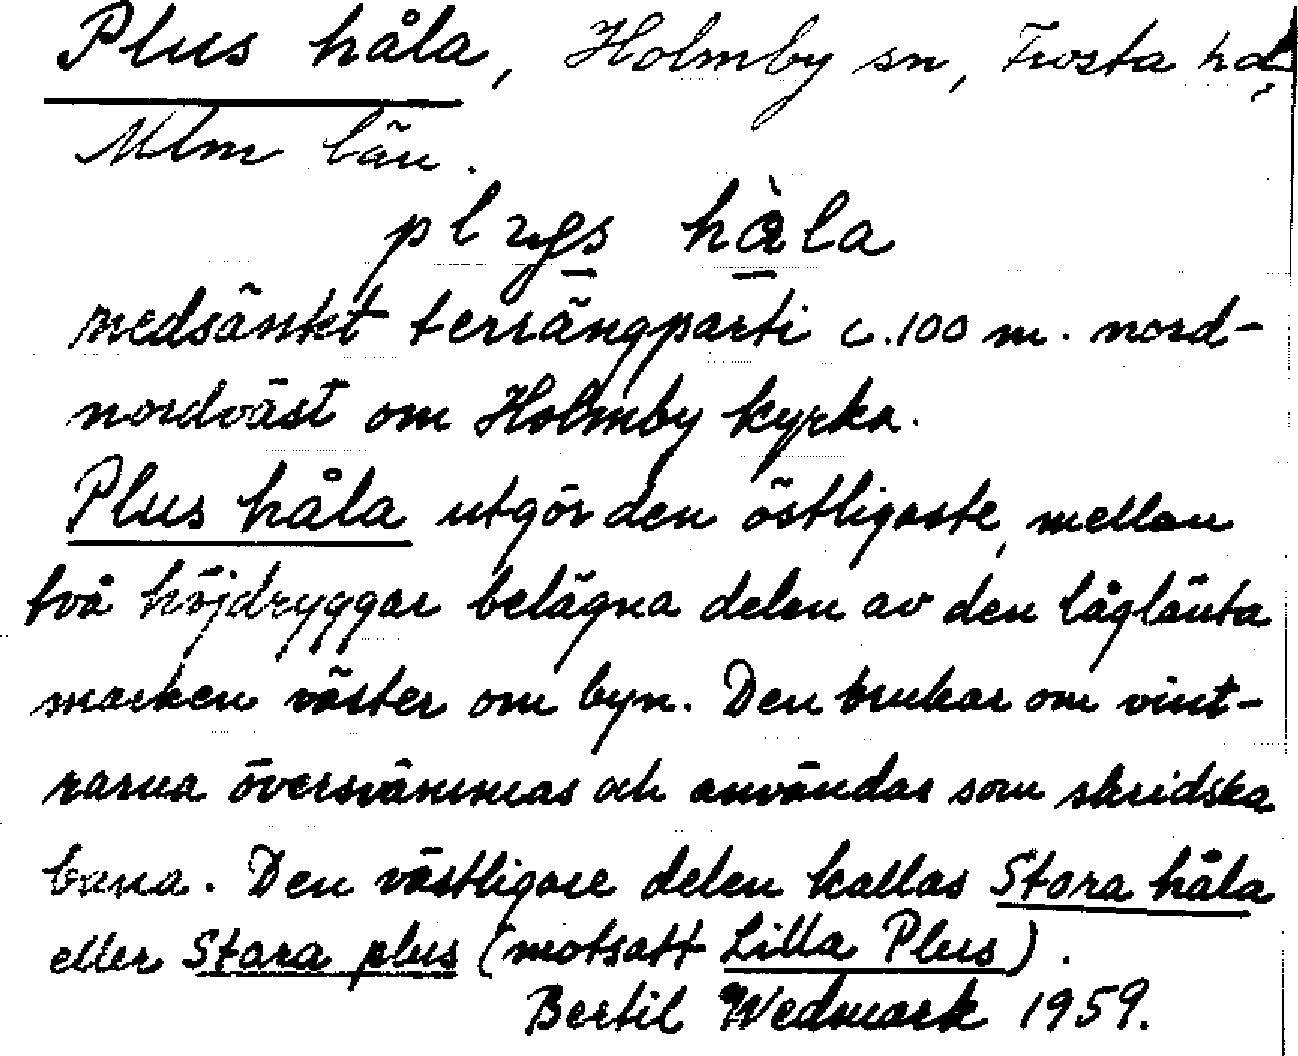 Plus håla, Holmby sn, Frosta hd,
Mlm län.
håla
nedsänkt terrängparti c. 100 m. nord-
nordväst om Holmby kyrka.
Plus håla utgör den östligaste, mellan
två höjdryggar belägna delen av den låglänta
marken väster om byn. Den brukar om vint-
rarna översvämmas och användas som skridsko
bana. Den västligare delen kallas Stora håla
eller Stora plus (motsatt Lilla Plus).
Bertil Wedmark 1959.